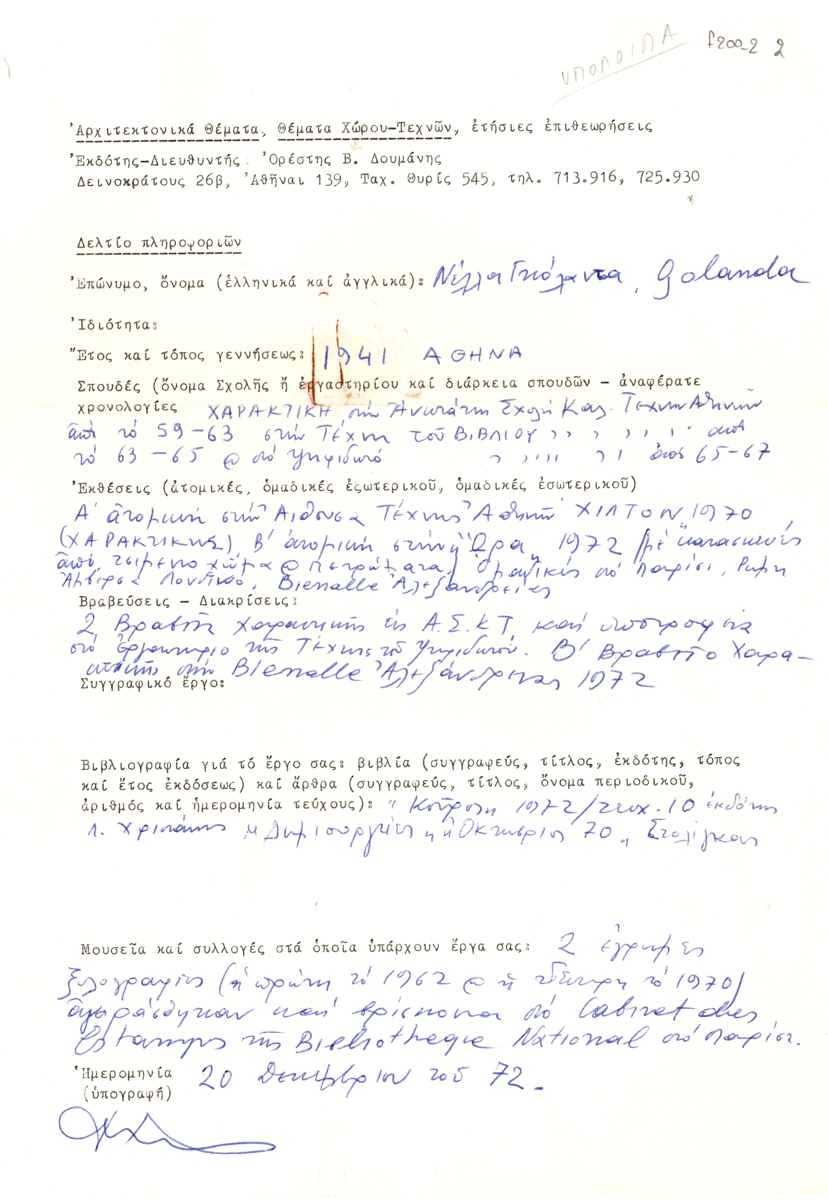 ΥΠΟΛΟΙΠΑ
2
Ἀρχιτεκτονικά Θέματα, Θέματα Χώρου-Τεχνῶν, ἐτήσιες ἐπιθεωρήσεις
Ἐκδότης-Διευθυντής Ὀρέστης Β. Δουμάνης
Δεινοκράτους 26β, Ἀθῆναι 139, Ταχ. Θυρίς 545, τηλ. 713.916, 725.930
Δελτίο πληροφοριῶν
Ἐπώνυμο, ὄνομα (ἑλληνικά καί ἀγγλικά): Νέλλα Γκόλαντα, Golanda
Ἰδιότητα:
Ἔτος καί τόπος γεννήσεως: 1941 ΑΘΗΝΑ
Σπουδές (ὄνομα Σχολῆς ἤ ἐργαστηρίου καί διάρκεια σπουδῶν - ἀναφέρατε
χρονολογίες ΧΑΡΑΚΤΙΚΗ στήν Ἀνωτάτη Σχολή Καλ. Τεχνῶν Ἀθηνῶν
ἀπό τό 59-63 στήν ΤΕΧΝΗ τοῦ ΒΙΒΛΙΟΥ ,, ,, ,, ἀπό
τό 63-65 στό ψηφιδωτό ,, ,,,, ,, ἀπό 65-67
Ἐκθέσεις (ἀτομικές, ὁμαδικές ἐξωτερικοῦ, ὁμαδικές ἐσωτερικοῦ)
Α' ἀτομική στήν Αἴθουσα Τέχνης Ἀθηνῶν ΧΙΛΤΟΝ 1970
(ΧΑΡΑΚΤΙΚΗΣ) Β' ἀτομική στήν "Ὥρα" 1972 μέ κατασκευές
ἀπό τσιμέντο χῶμα πετρώματα) Ὁμαδικές στό Παρίσι, Ρώμη
Λονδῖνο, Biennalle Ἀλεξανδρείας
Βραβεύσεις - Διακρίσεις:
2 Βραβεῖα Χαρακτικῆς τῆς Α.Σ.Κ.Τ. καί ὑποτροφία
στό ἐργαστήριο τῆς Τέχνης τοῦ Ψηφιδωτοῦ. Β' Βραβεῖο Χαρα-
κτικῆς στήν Biennalle Ἀλεξάνδρειας 1972
Συγγραφικό ἔργο:
Βιβλιογραφία γιά τό ἔργο σας: βιβλία (συγγραφεύς, τίτλος, ἐκδότης, τόπος
καί ἔτος ἐκδόσεως) καί ἄρθρα (συγγραφεύς, τίτλος, ὄνομα περιοδικοῦ,
ἀριθμός καί ἡμερομηνία τεύχους): 1972/τευχ. 10 ἐκδότης
Λ. Χρηστάκης "Δημιουργίες" Ὀκτώβριος 70
Μουσεῖα καί συλλογές στά ὁποῖα ὑπάρχουν ἔργα σας: 2 ἔγχρωμες
ξυλογραφίες (ἡ πρώτη τό 1962 ἡ δεύτερη τό 1970)
ἀγοράσθηκαν καί βρίσκονται στό Cabinet des
Estamps τῆς Bibliotheque National στό Παρίσι.
Ἡμερομηνία 20 Δεκεμβρίου τοῦ 72.
(ὑπογραφή)